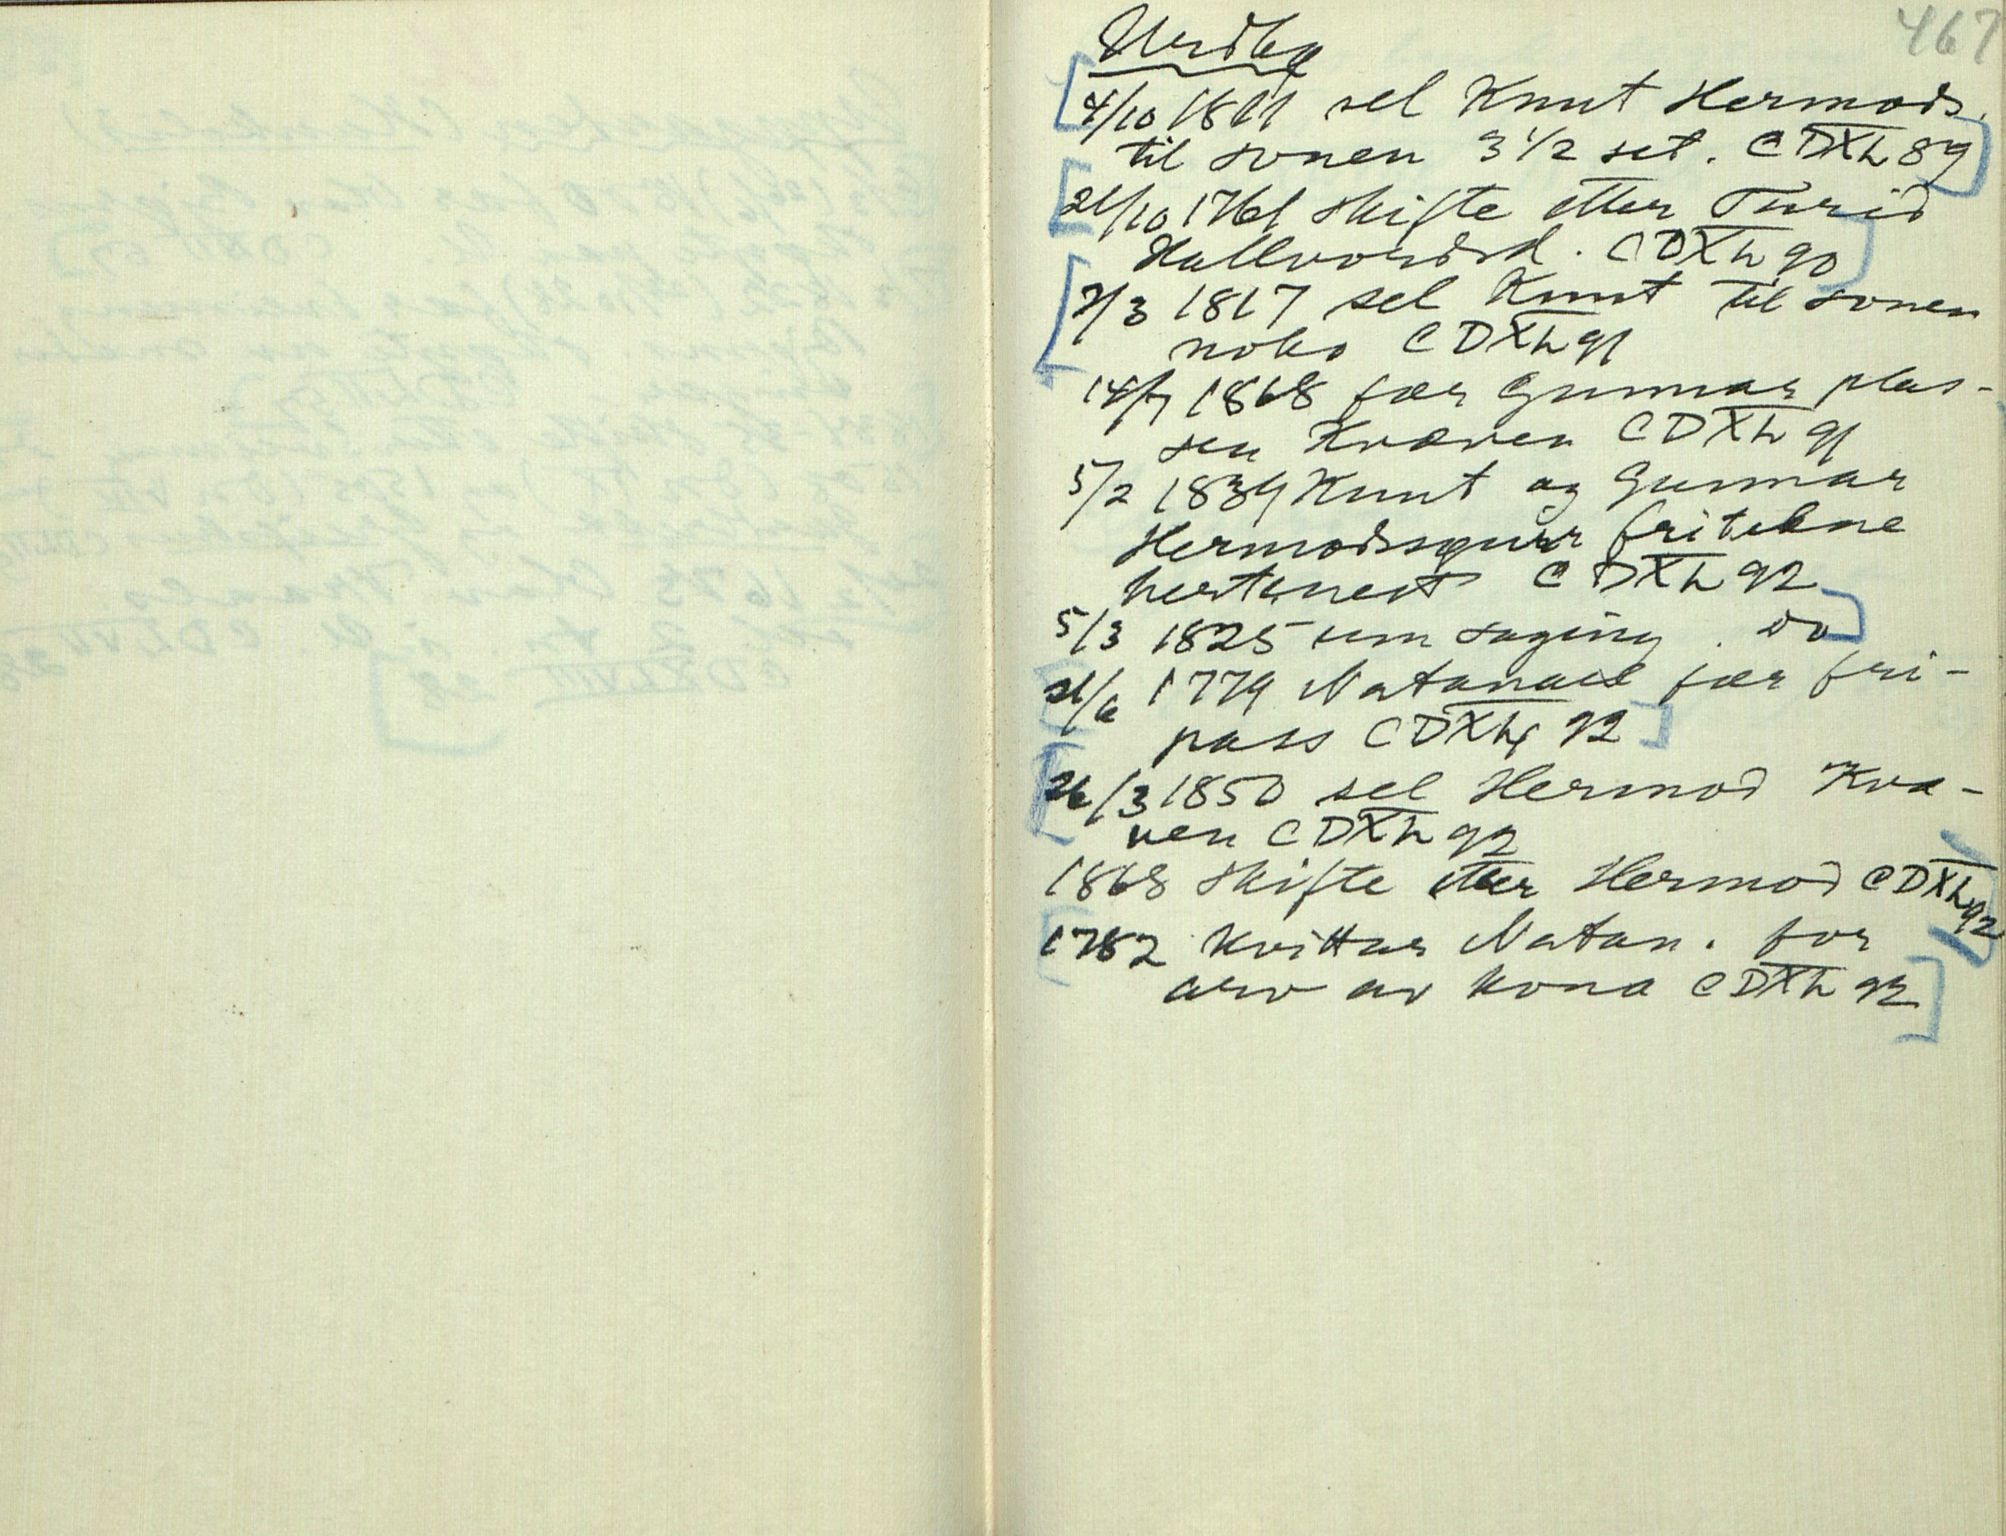 467
Urdbø
4/10 1811 sel Knut Hermods.
til sonen 3 1/2 set. CDXL 89
21/10 1761 skifte etter Turid
Hallvordsd. CDXL 90
7/3 1817 sel Knut til sonen
noko CDXL 91
14/7 1868 fær Gunnar plas-
sen Kvæven CDXL 91
5/2 1839 Knut og Gunnar
Hermodsgurr fritekne
hertenest CDXL 92
5/3 1825 um saging. do
21/6 1779 Natanael fær fri-
pass CDXL 92
26/3 1850 sel Hermod Kvæ-
ven CDXL 92
1868 skifte etter Hermod CDXL 92
1782 kvittar Natan. for
arv av kona CDXL 92